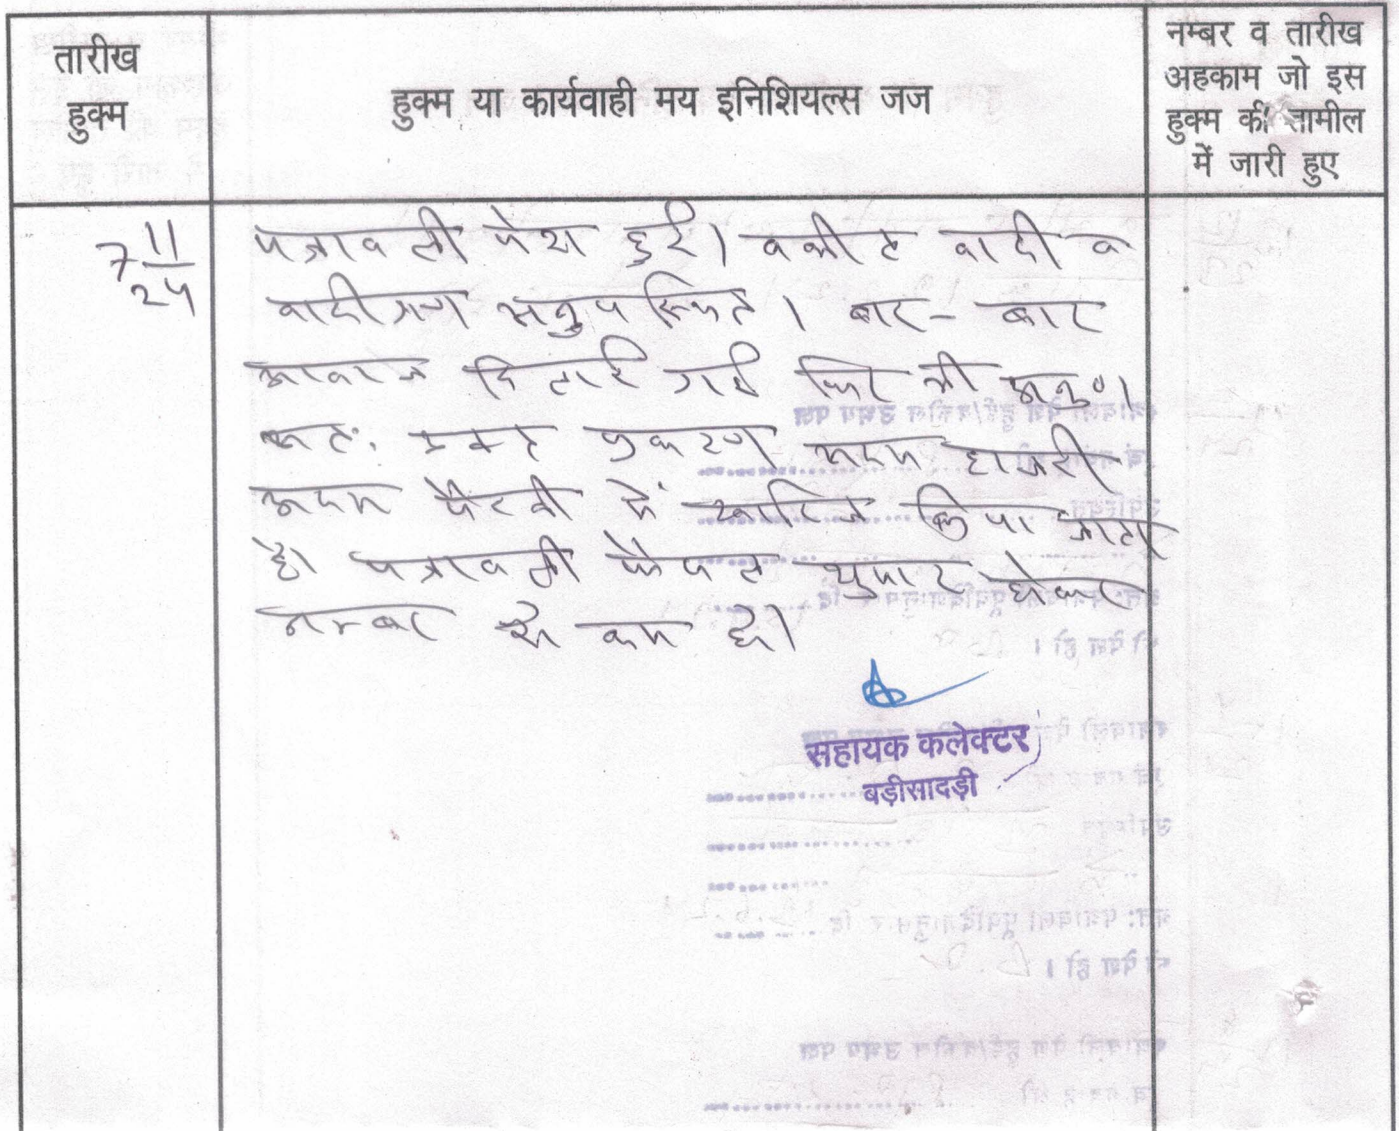 तारीख
हुक्म
हुक्म या कार्यवाही मय इनिशियल्स जज
नम्बर व तारीख
अहकाम जो इस
हुक्म की तामील
में जारी हुए
7 11/24
पत्रावली पेश हुई। वकील वादी व
वादीगण अनुपस्थित। बार-बार
आवाज दिलाई गई फिर भी अनु०।
अतः प्रकरण अदम हाजरी
अदम पैरवी में खारिज किया जाता
है। पत्रावली फैसल शुमार होकर
नम्बर से कम हो।
सहायक कलेक्टर
बड़ीसादड़ी